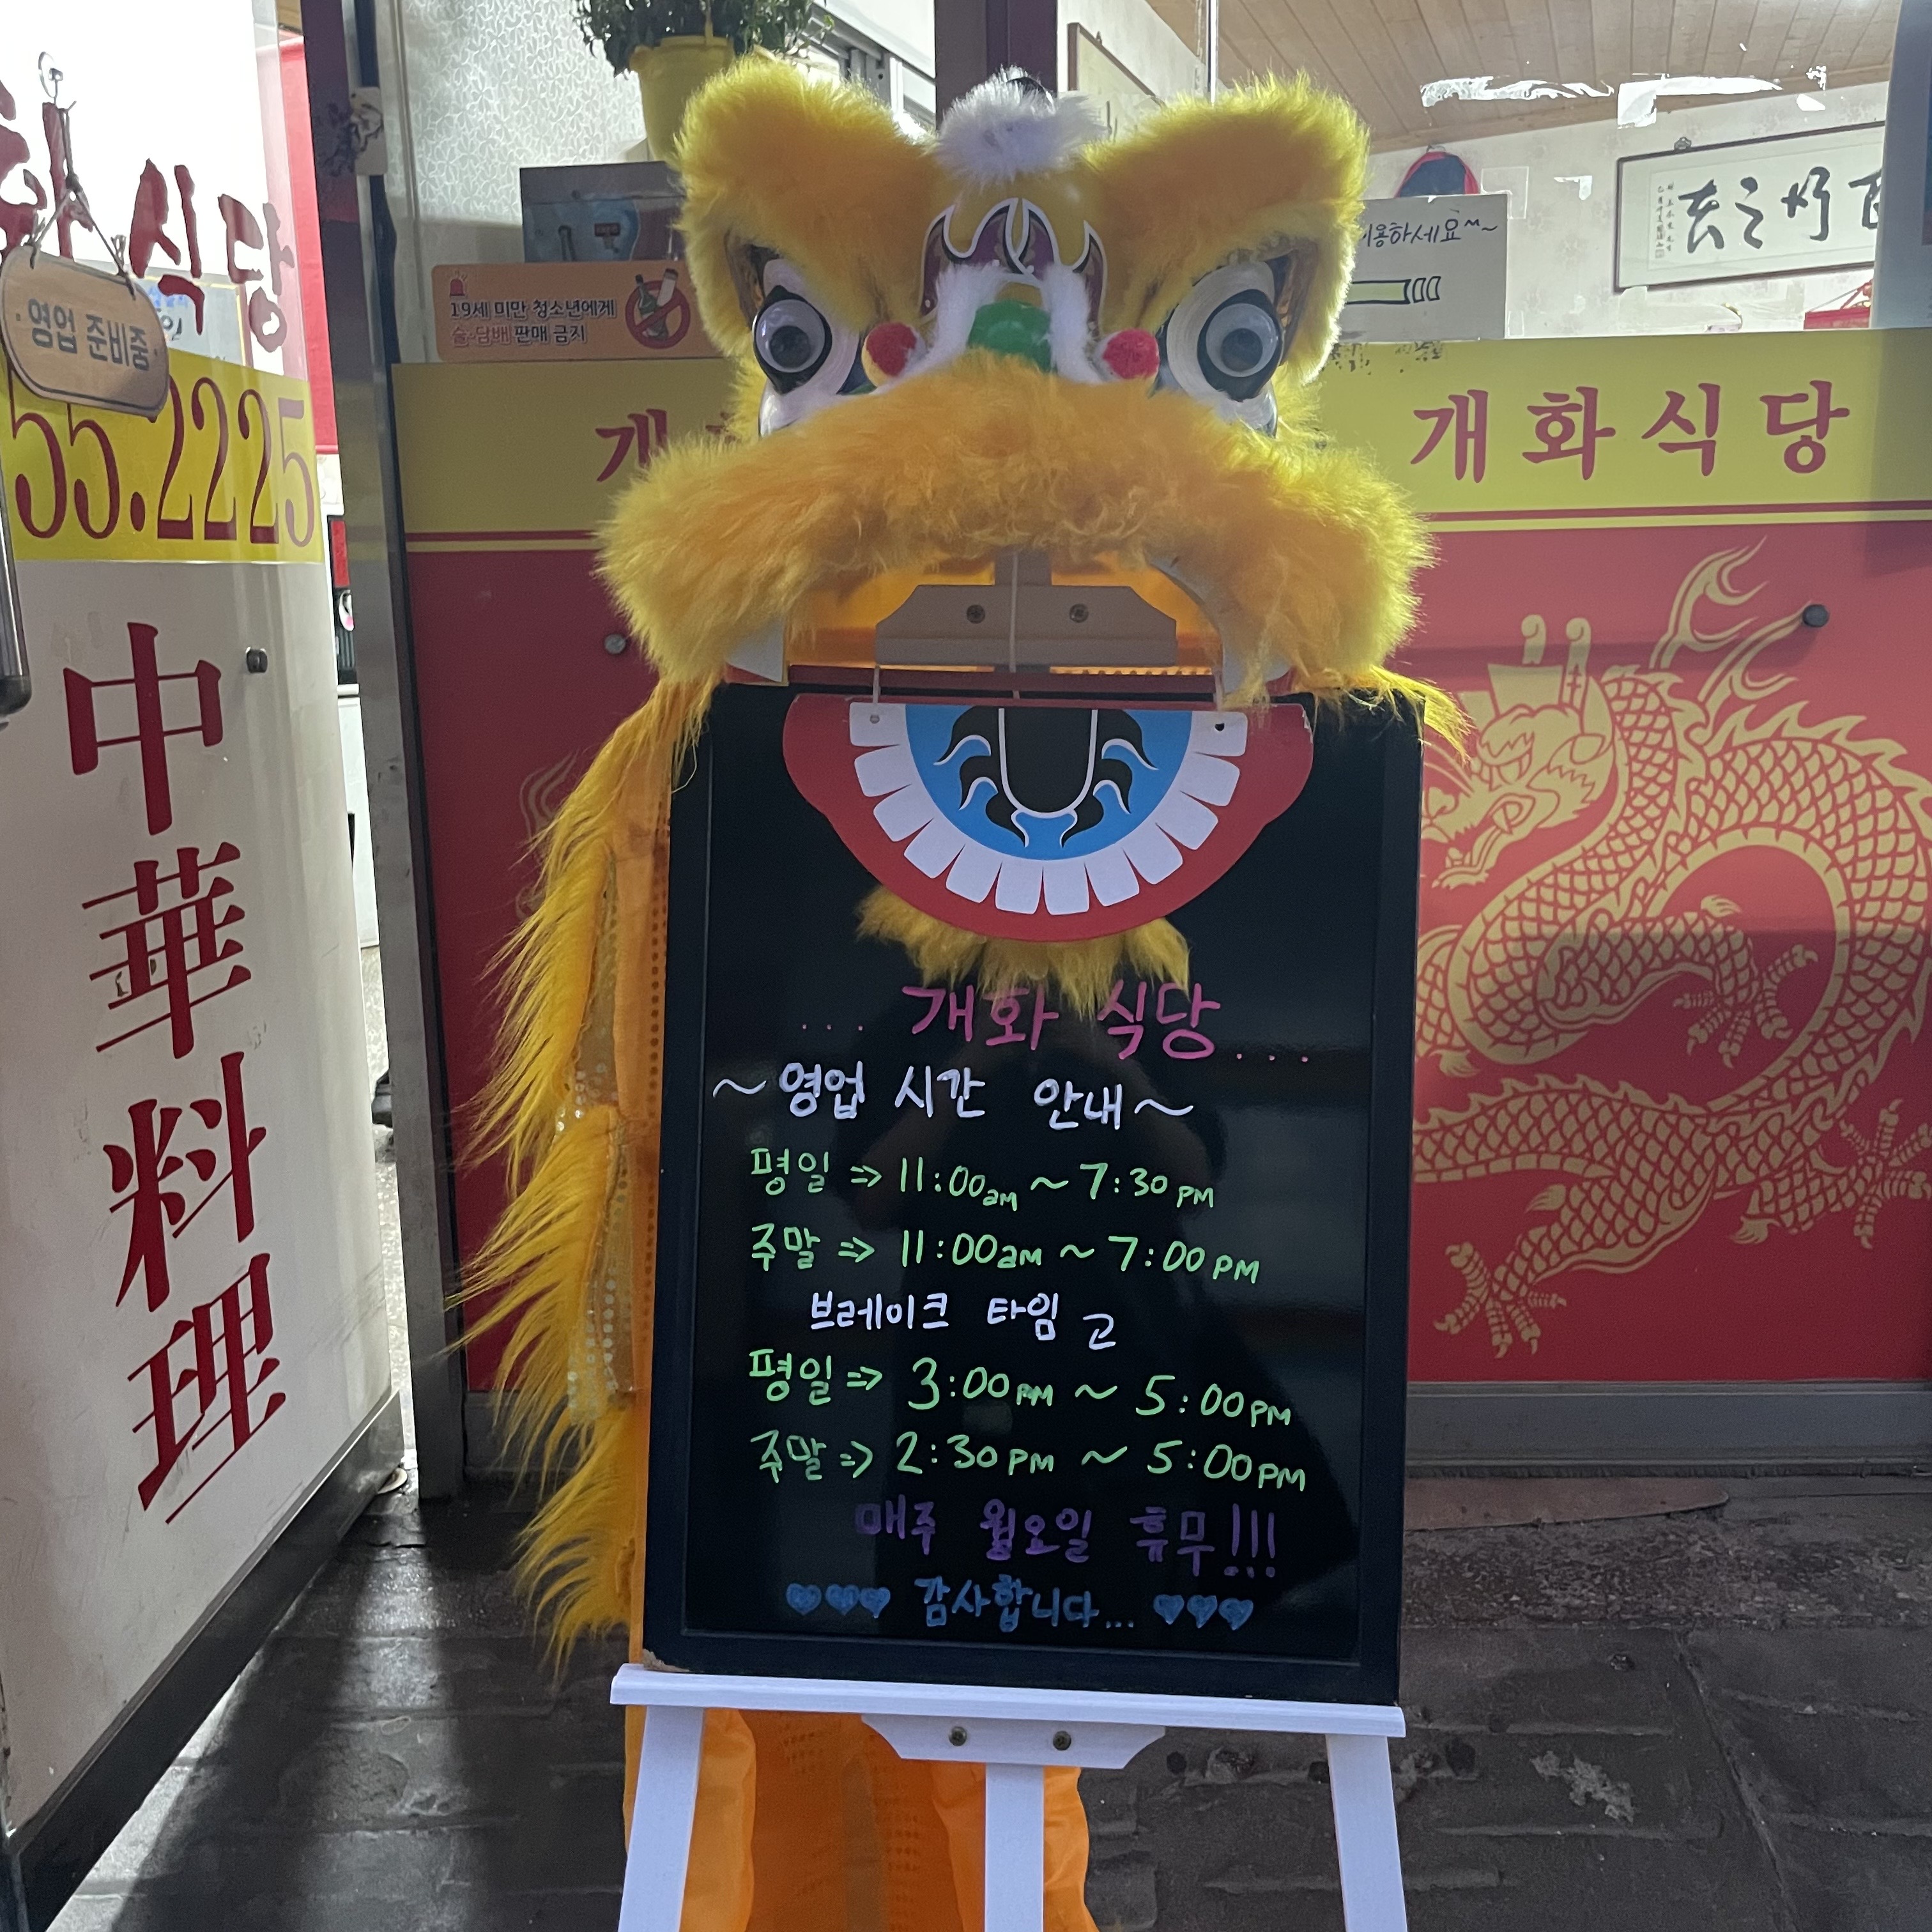 식당
영업 준비중
55.2225
中華料理
19세 미만 청소년에게
술·담배 판매 금지
이용하세요~
개
개화식당
... 개화 식당 ...
~ 영업 시간 안내 ~
평일 ⇒ 11:00am ~ 7:30pm
주말 ⇒ 11:00am ~ 7:00pm
브레이크 타임
평일 ⇒ 3:00pm ~ 5:00pm
주말 ⇒ 2:30pm ~ 5:00pm
매주 월요일 휴무!!!
♡♡♡ 감사합니다... ♡♡♡